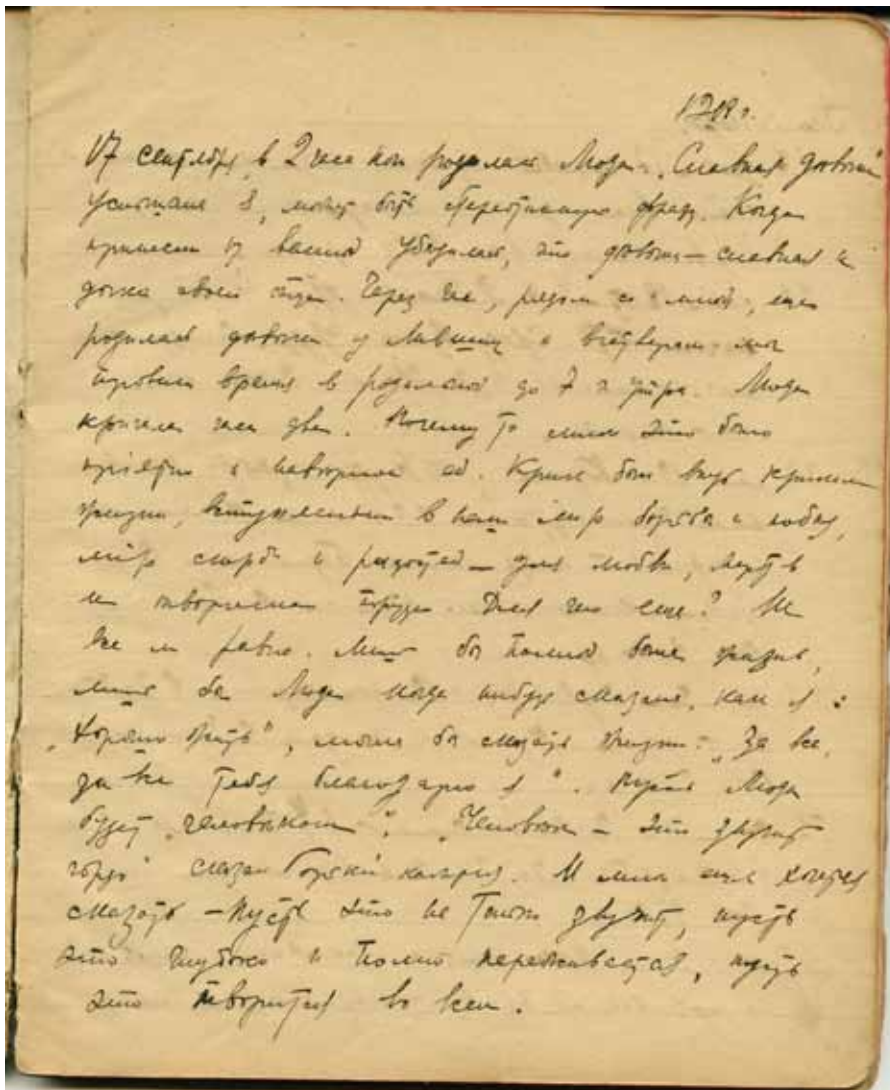 17 сентября, в 2 часа ночи родилась Мюда. "Славная девочка"
услышала я, может быть стереотипную фразу. Когда
принесли из ванной убедилась, что девочка — славная и
дочка своего отца. Через час, рядом со мной, еще
родилась девочка у и вчетвером мы
провели время в родильной до 7 ч утра. Мюда
кричала часа два. Почему то мне это было
приятно и ей. Крик был ведь криком
жизни, в наш мир борьбы и побед,
мир скорби и радостей — для любви,
и творчества труда. Для чего еще? Не
все ли равно. Лишь бы полной была жизнь,
лишь бы Мюда когда нибудь сказала, как я:
"Хорошо жить", могла бы сказать жизни: "За все,
за все тебя благодарю я". Пусть Мюда
будет "человеком". "Человек — это звучит
гордо" сказал Горький когда. И мне еще хочется
сказать — пусть это не только звучит, пусть
это глубоко и полно переживается, пусть
это творится во всем.